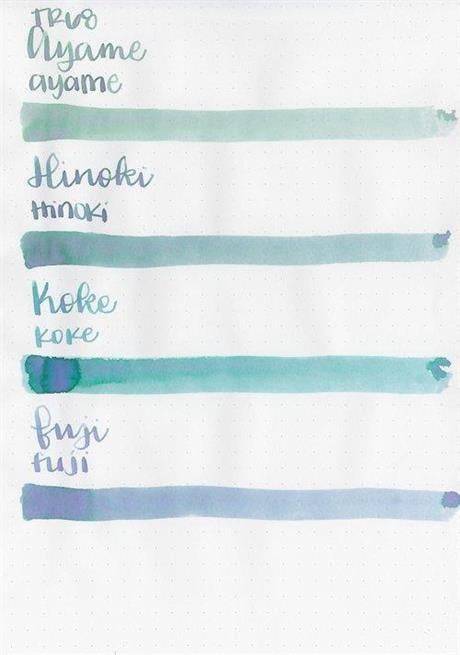 TR68
Ayame
ayame
Hinoki
Hinoki
Koke
Koke
fuji
fuji